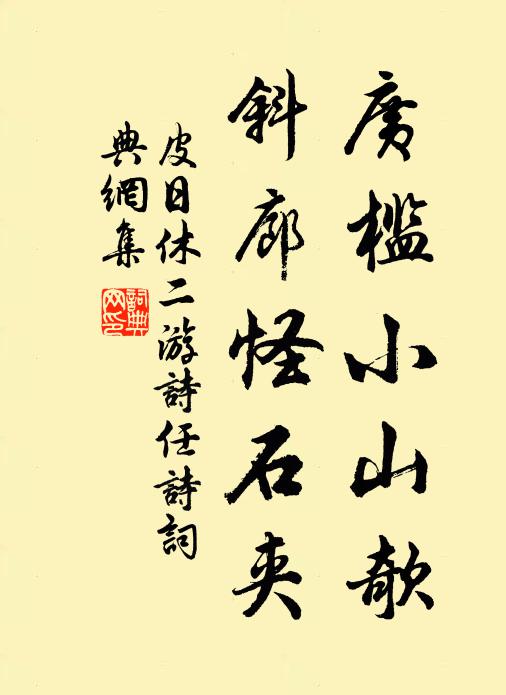 廣檻小山欹
斜廊怪石夾
皮日休二游詩任詩詞
典網集
詞典
网印